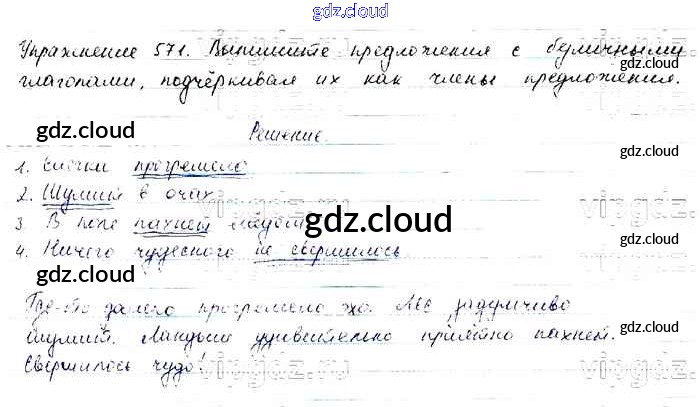 gdz.cloud
Упражнение 571. Выпишите предложения с безличными
глаголами, подчёркивая их как члены предложения.
gdz.cloud
Решение.
gdz.cloud
1. прогремело
2. Шумит в очах
3. В поле пахнет gdz.cloud
4. Ничего чудесного не свершилось
gdz.cloud
gdz.cloud
Где-то далеко прогремело эхо. Лес задумчиво
шумит. Ландыш удивительно приятно пахнет.
gdz.cloud
Свершилось чудо!
vipgdz.ru
gdz.cloud